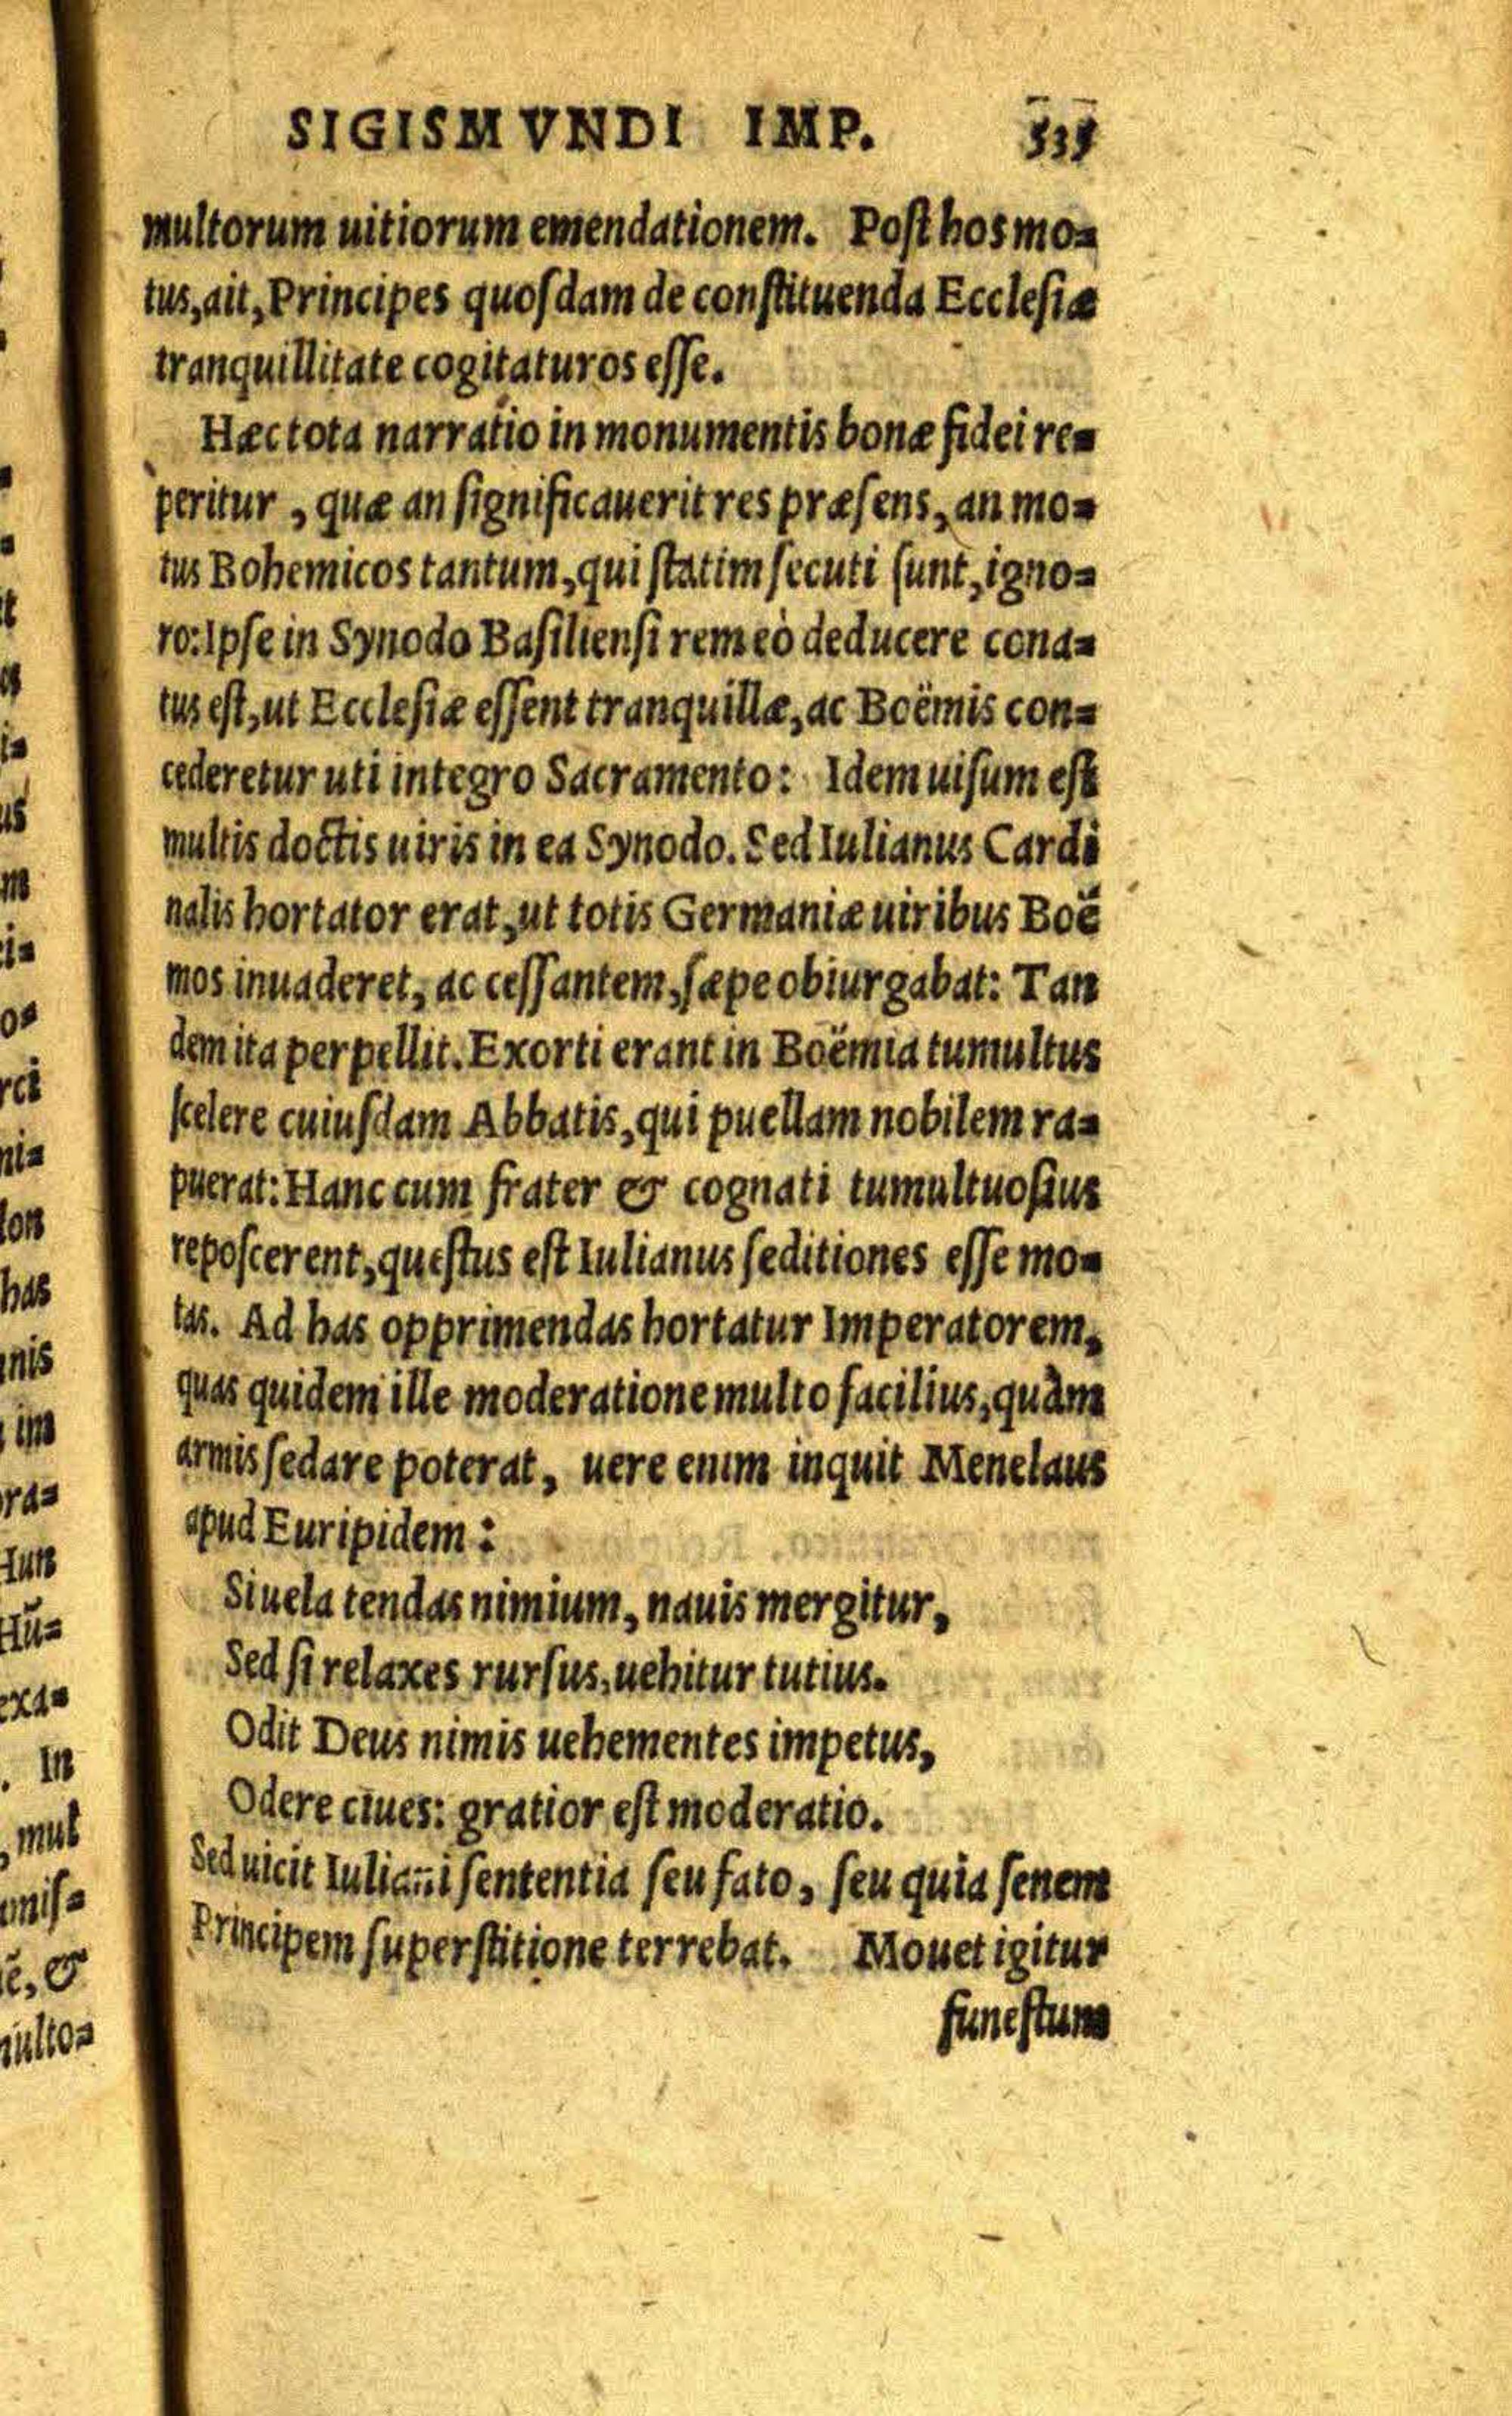 SIGISMVNDI IMP. 535
multorum uitiorum emendationem. Post hos mo=
tus, ait, Principes quosdam de constituenda Ecclesiæ
tranquillitate cogitaturos esse.
Hæc tota narratio in monumentis bonæ fidei re=
peritur, quæ an significauerit res præsens, an mo=
tus Bohemicos tantum, qui statim secuti sunt, igno=
ro: Ipse in Synodo Basiliensi rem eò deducere cona=
tus est, ut Ecclesiæ essent tranquillæ, ac Boëmis con=
cederetur uti integro Sacramento: Idem uisum est
multis doctis uiris in ea Synodo. Sed Iulianus Cardi
nalis hortator erat, ut totis Germaniæ uiribus Boë
mos inuaderet, ac cessantem, sæpe obiurgabat: Tan
dem ita perpellit. Exorti erant in Boëmia tumultus
scelere cuiusdam Abbatis, qui puellam nobilem ra=
puerat: Hanc cum frater & cognati tumultuosius
reposcerent, questus est Iulianus seditiones esse mo=
tas. Ad has opprimendas hortatur Imperatorem,
quas quidem ille moderatione multo facilius, quàm
armis sedare poterat, uere enim inquit Menelaus
apud Euripidem:
Si uela tendas nimium, nauis mergitur,
Sed si relaxes rursus, uehitur tutius.
Odit Deus nimis uehementes impetus,
Odere ciues: gratior est moderatio.
Sed uicit Iuliani sententia seu fato, seu quia senem
Principem superstitione terrebat. Mouet igitur
funestum